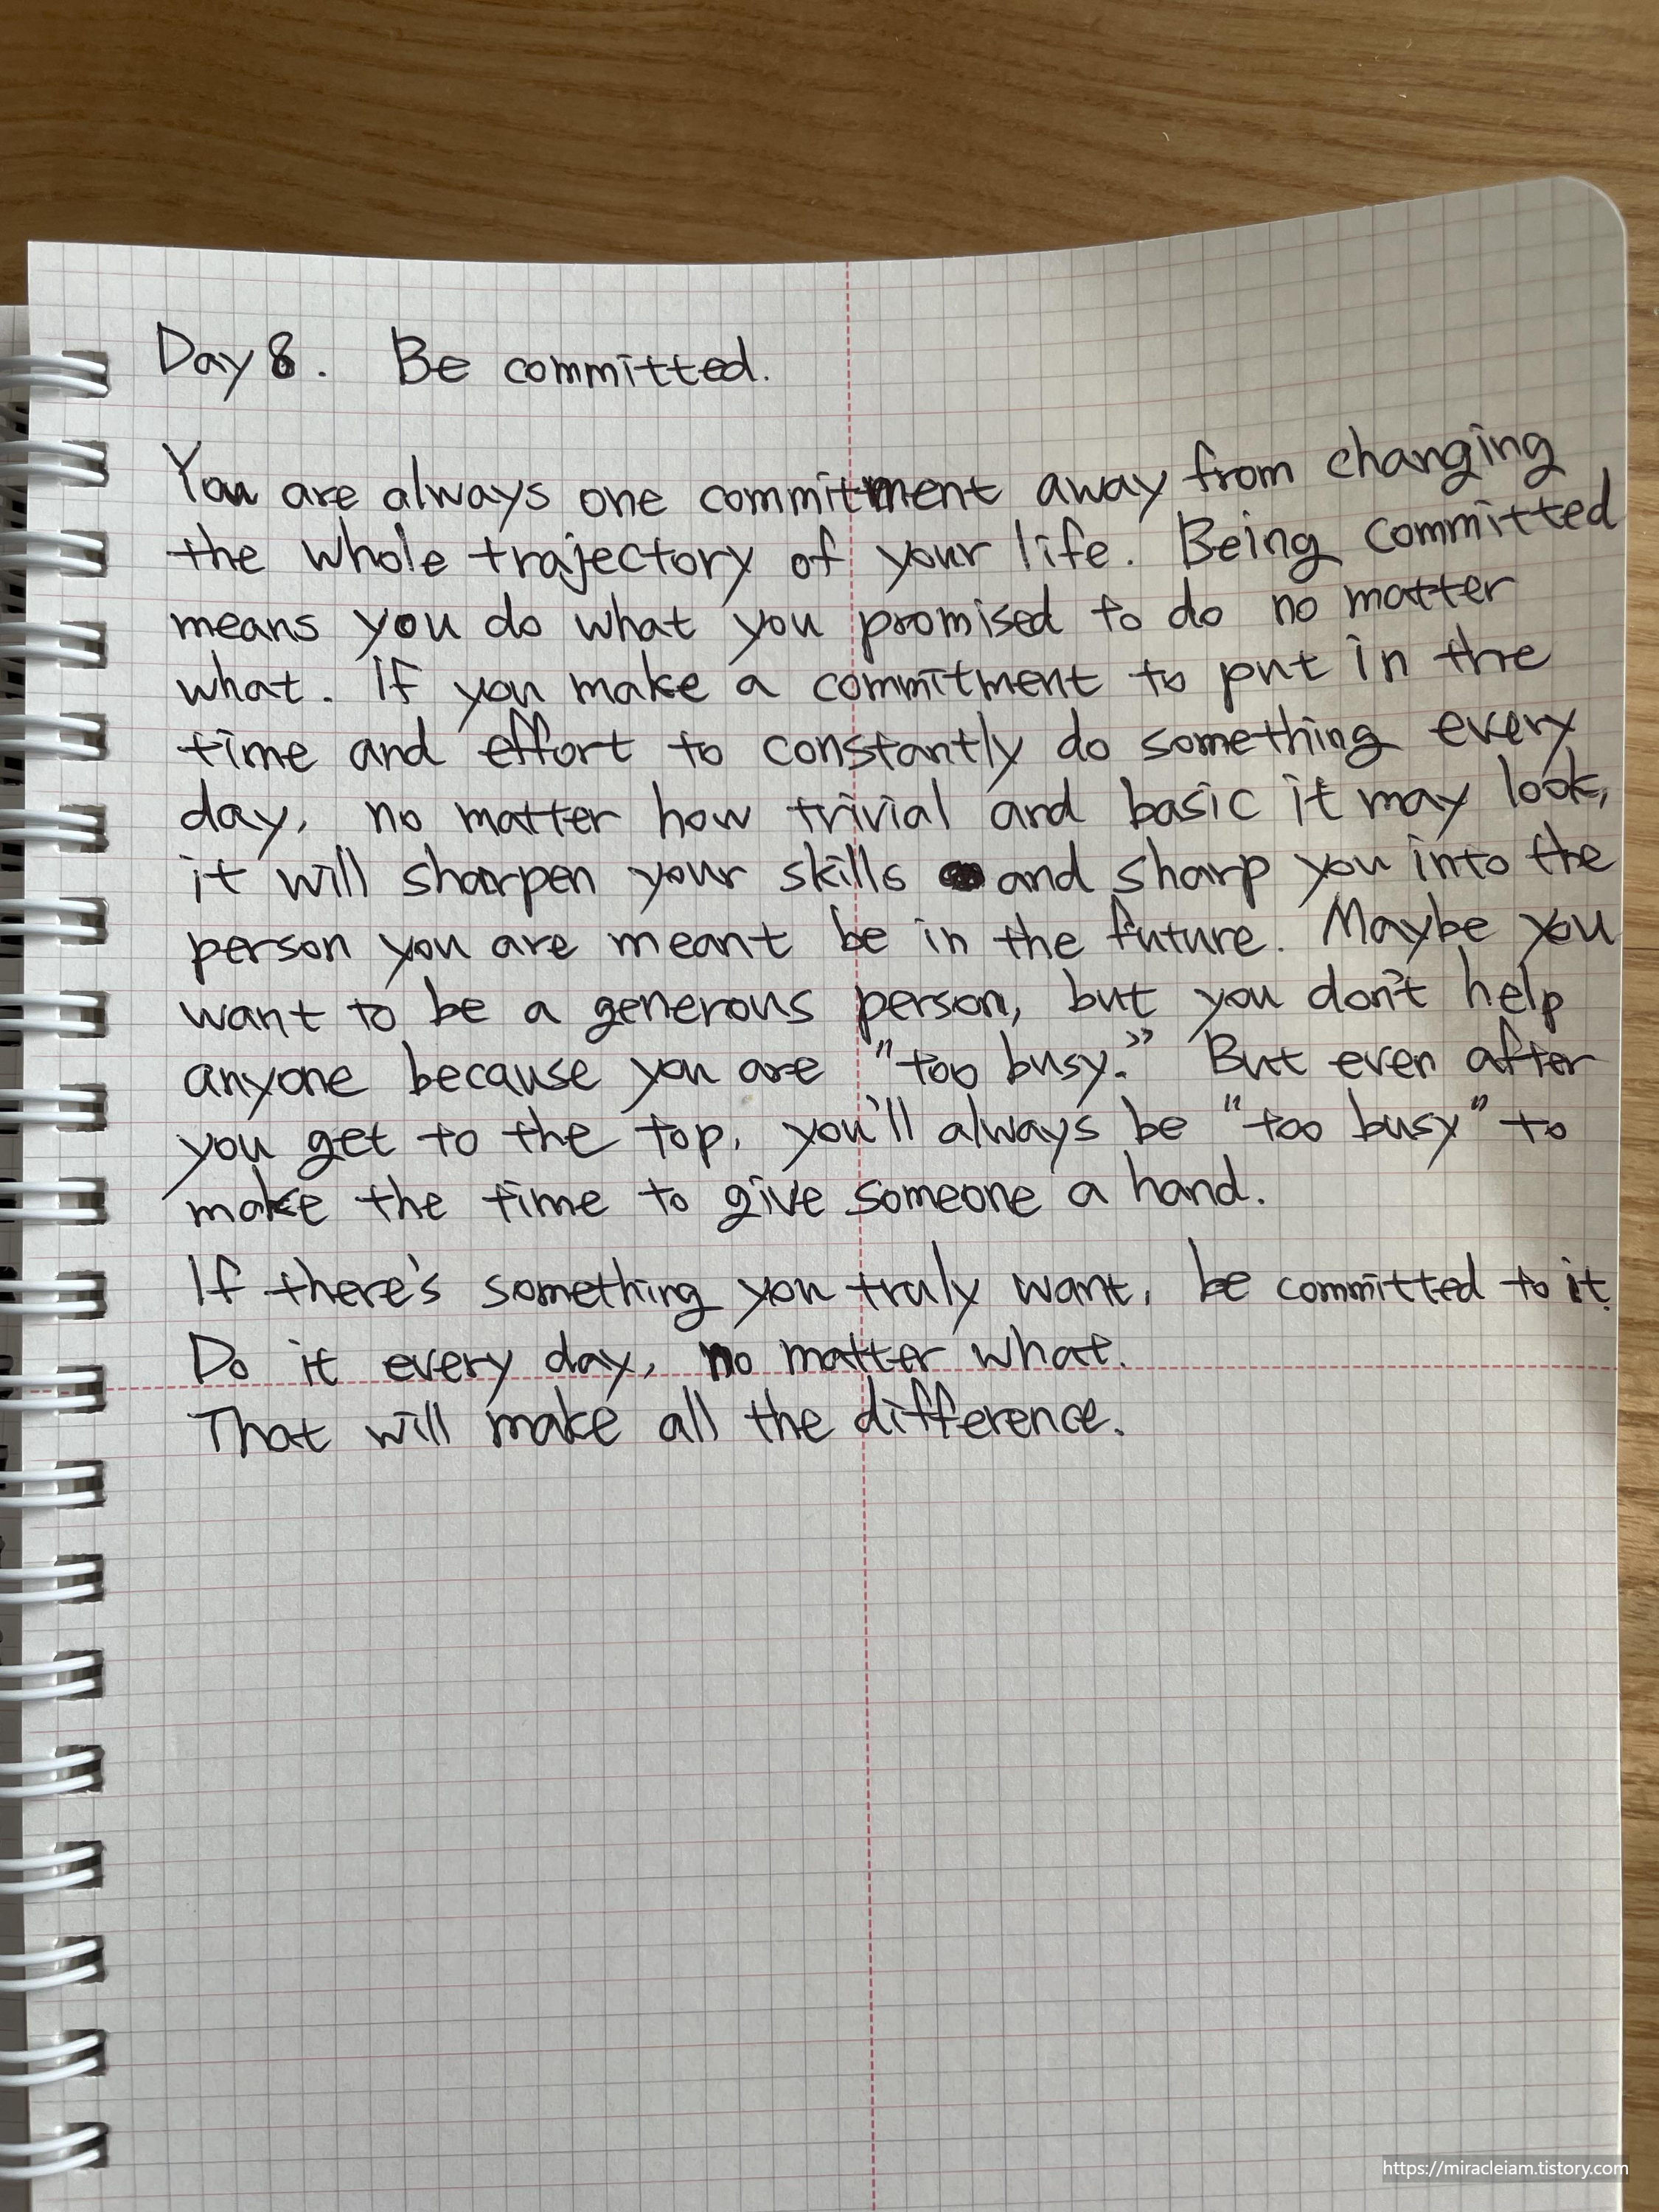 Day 8. Be committed.
You are always one commitment away from changing
the whole trajectory of your life. Being committed
means you do what you promised to do no matter
what. If you make a commitment to put in the
time and effort to constantly do something every
day, no matter how trivial and basic it may look,
it will sharpen your skills and sharp you into the
person you are meant be in the future. Maybe you
want to be a generous person, but you don't help
anyone because you are "too busy." But even after
you get to the top, you'll always be "too busy" to
make the time to give someone a hand.
If there's something you truly want, be committed to it.
Do it every day, no matter what.
That will make all the difference.
https://miracleiam.tistory.com